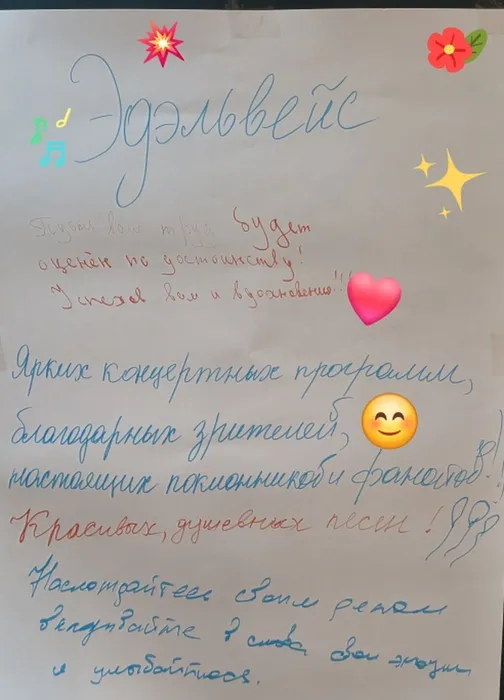 Эдэльвейс
Пусть ваш труд будет
оценён по достоинству!
Успехов вам и вдохновения!!!
Ярких концертных программ,
благодарных зрителей,
настоящих поклонников и фанатов!
Красивых, душевных песен!
Наслаждайтесь своим делом
вкладывайте в слова свои эмоции
и улыбайтесь.